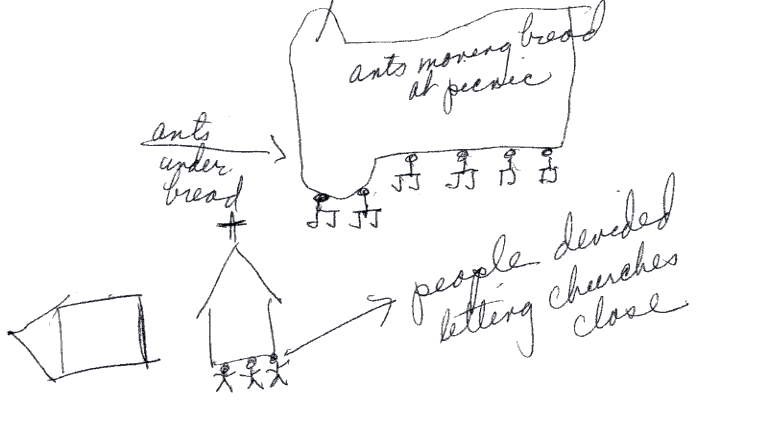 ants moving bread
at picnic
ants
under
bread
people devided
letting churches
close